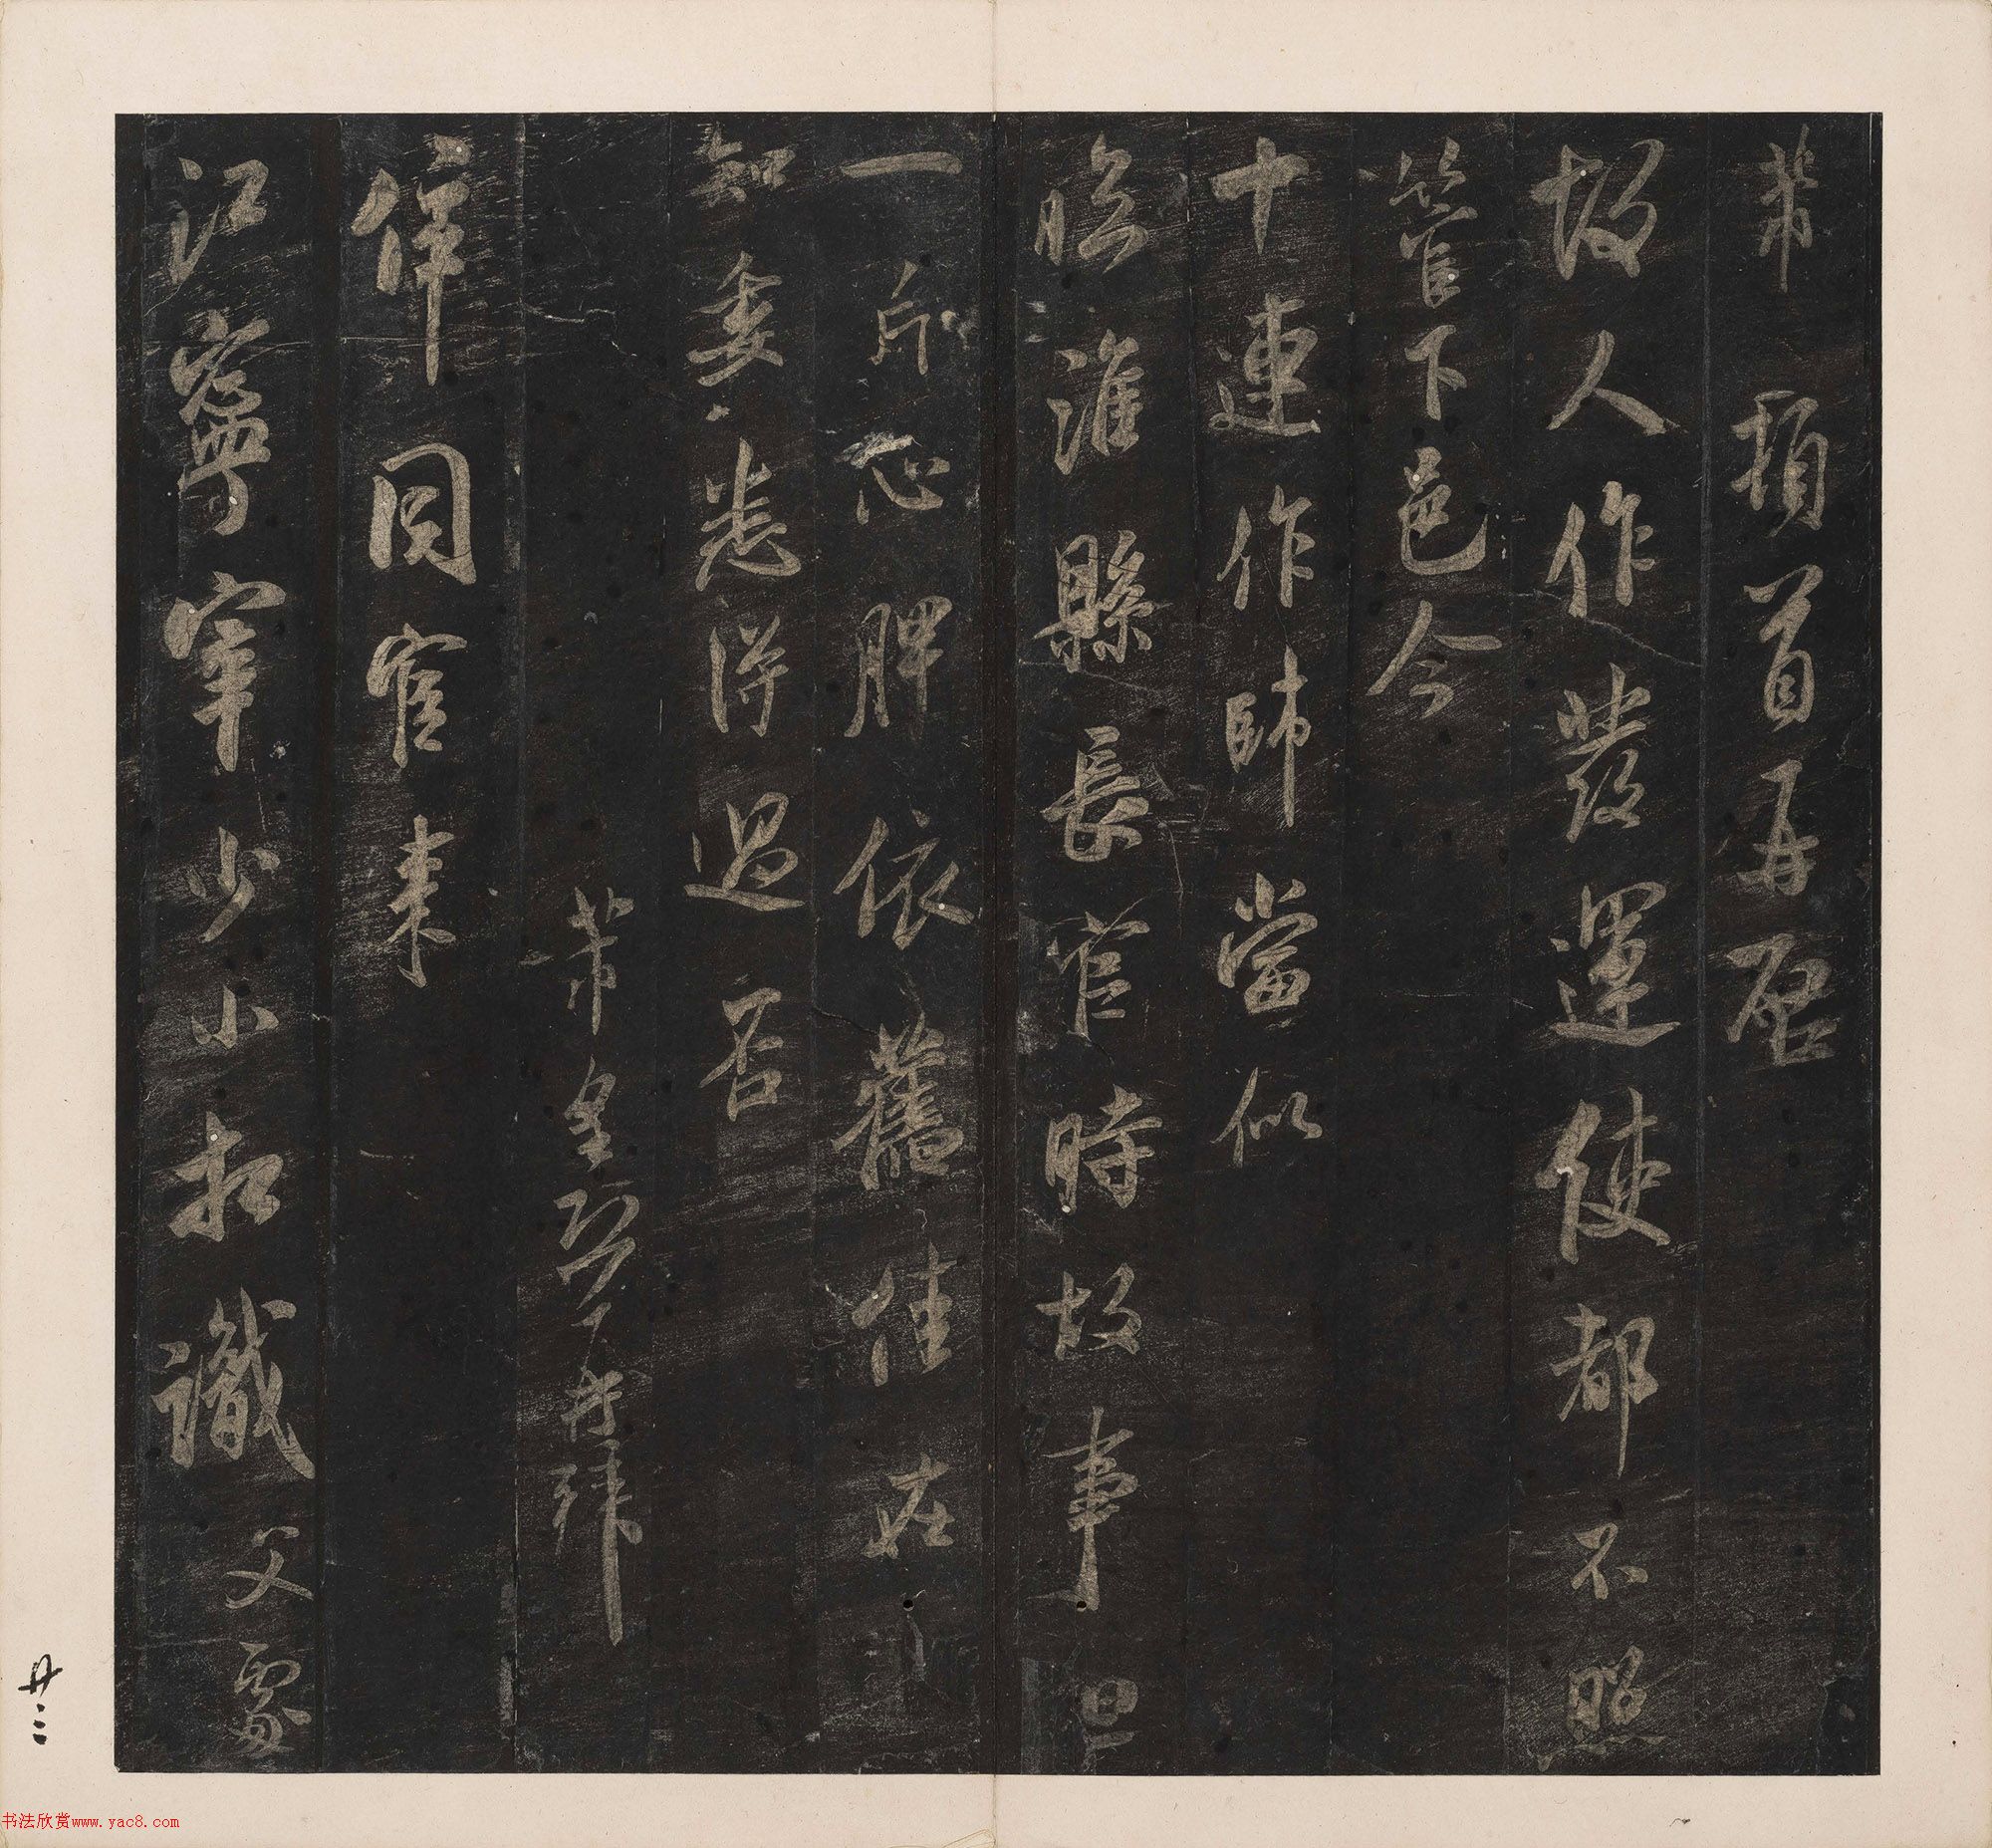 芾頓首再啓
故人作發運使都不照
管下邑令
十連作帥當似
臨淮縣長官時故事只
一斤心脾依舊佳在
知委悉得過否
芾皇恐頓首再拜
倅同官來
江寧宰少小相識父處
廿三
书法欣赏www.yac8.com